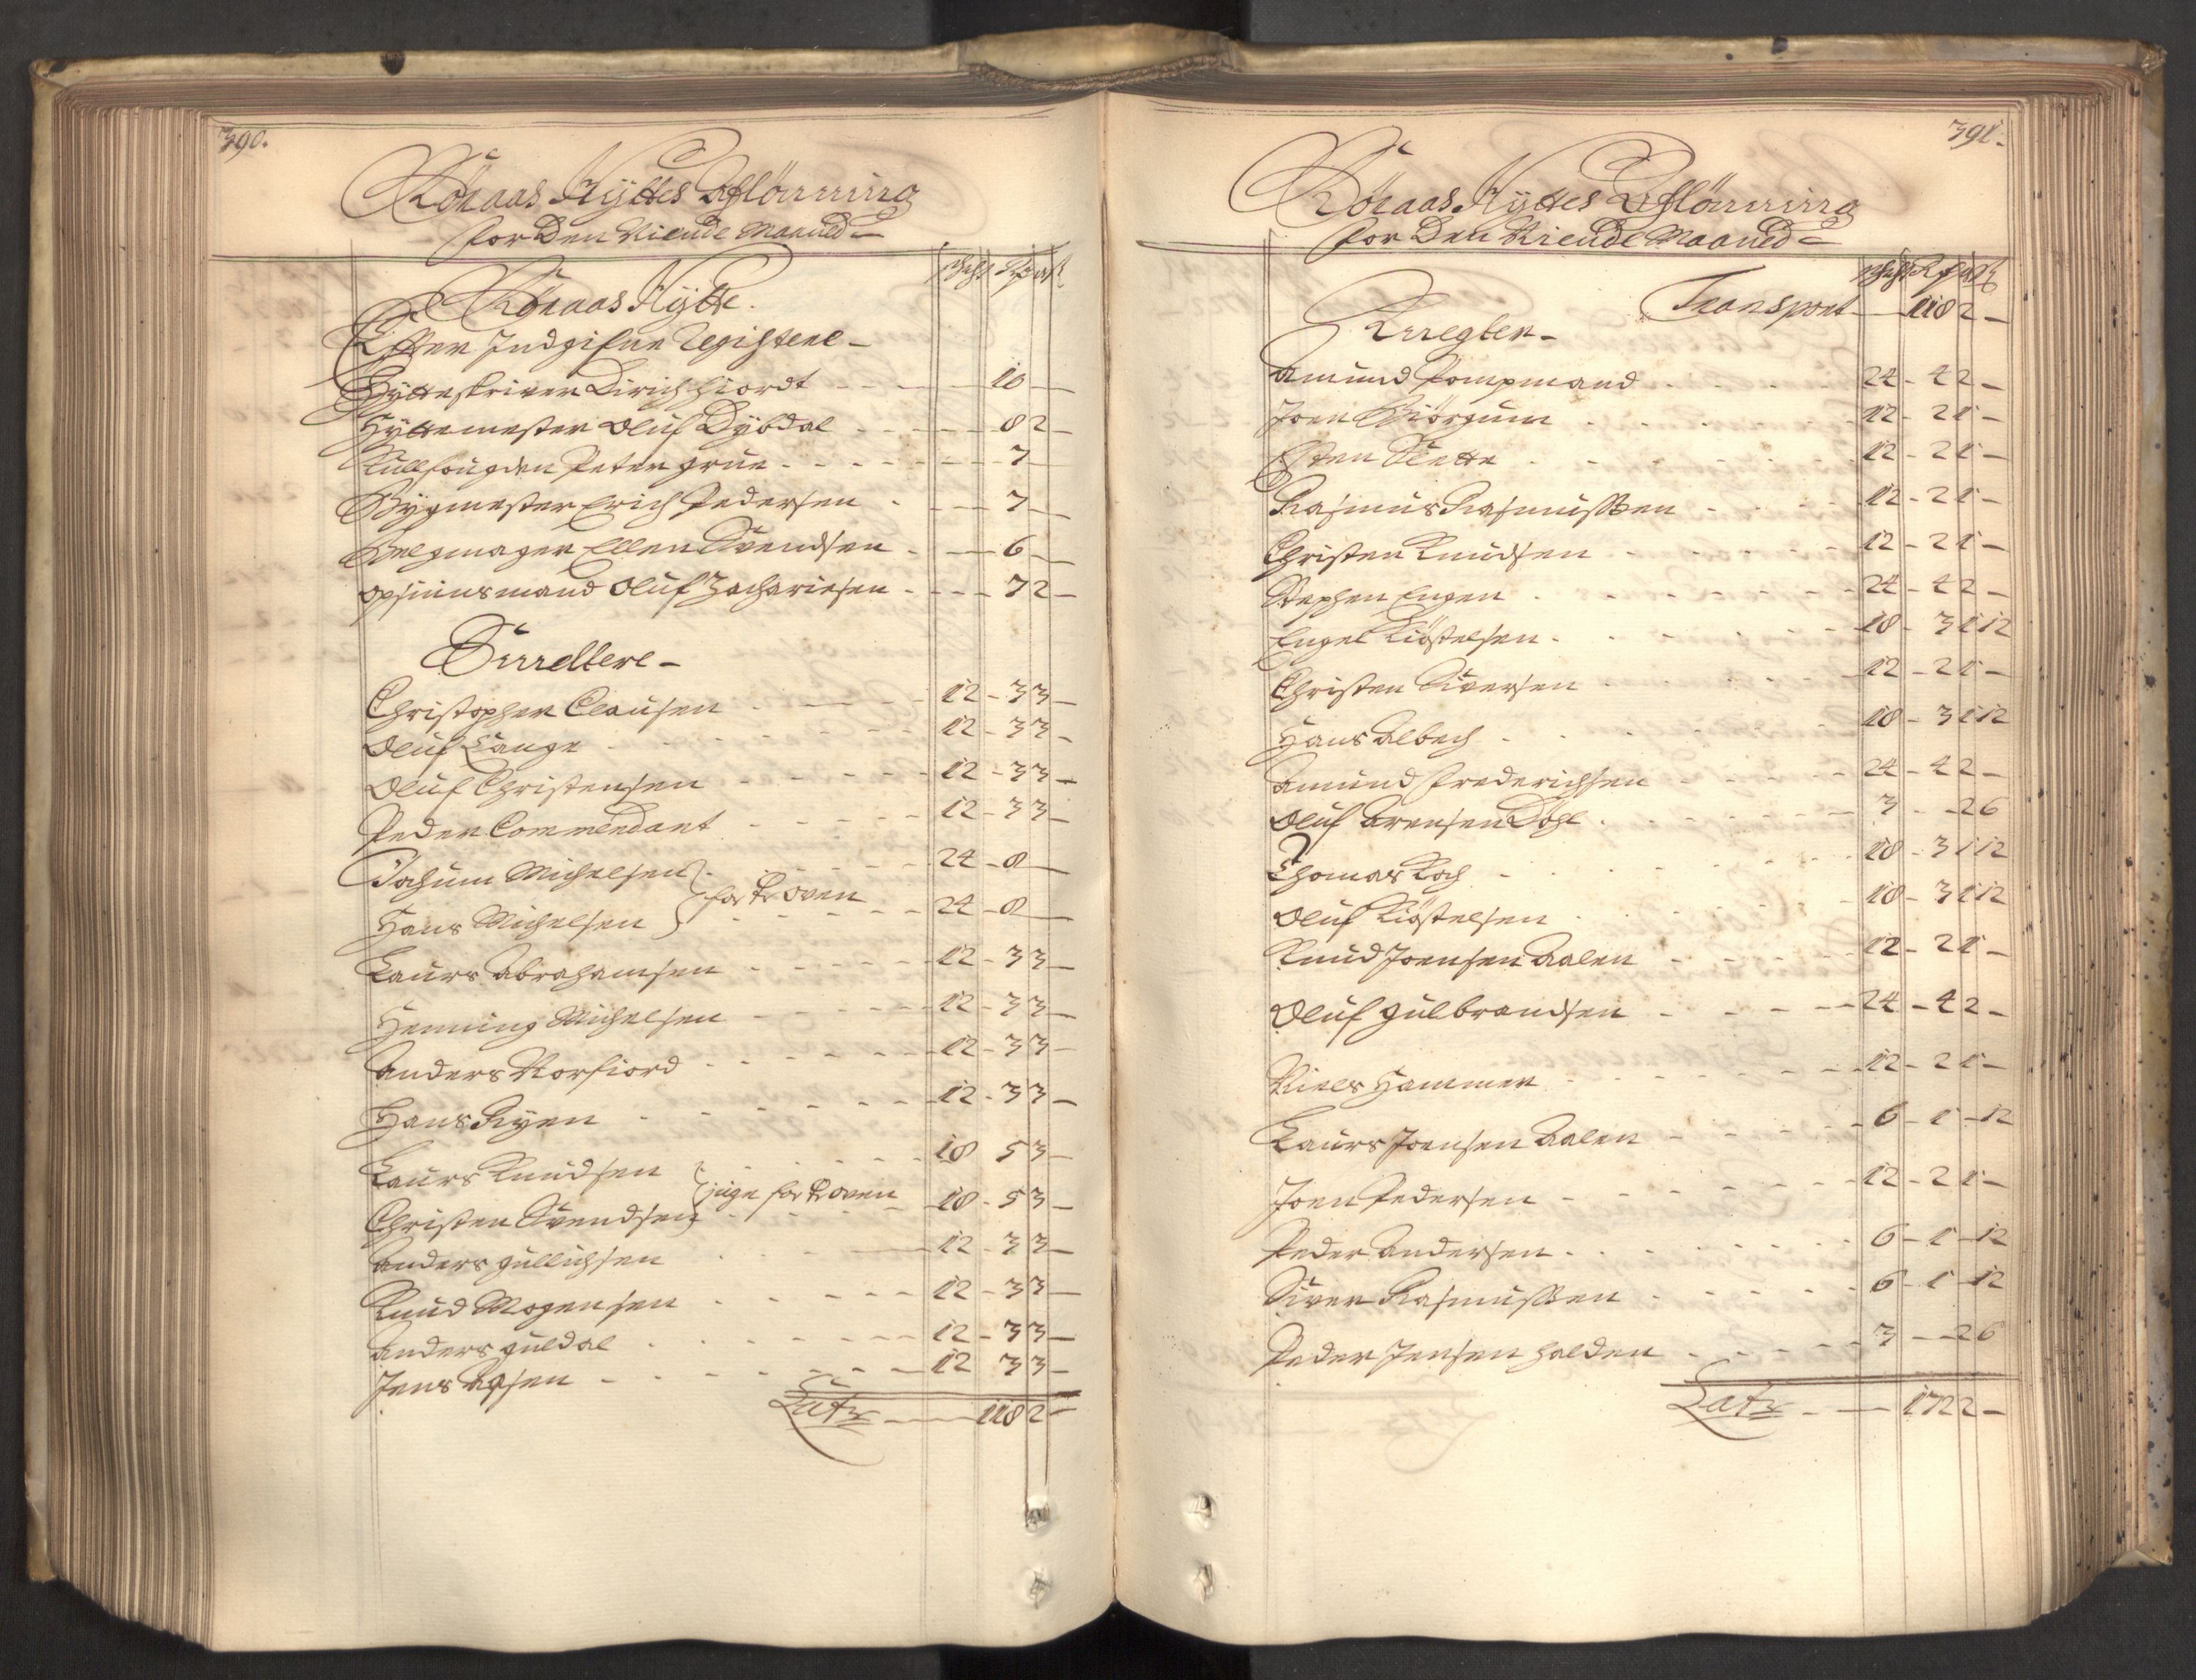 390.
Röraas Hyttes Afflönning
for Den Niende Maaned
Röraas Hytte.
Efter Indgifne Registere
Hytteskriver Dirich hiordt - 10 -
Hyttemester Oluf Dybdal - 8 2 -
Kullfougden Peter grue - 7 -
Bygmester Erich Pedersen - 7 -
Belgmager Ellen Svendsen - 6 -
opsiunsmand Oluf Zachariesen - 7 2 -
Smeltere
Christopher Clausen - 12 - 3 3 -
Oluf Lange - 12 - 3 3 -
Oluf Christensen - 12 - 3 3 -
Peder Commendant - 12 - 3 3 -
Jochum Michelsen - 24 - 8 -
for Pr oven
Hans Michelsen - 24 - 8 -
Laurs Abrahamsen - 12 - 3 3 -
Henning Michelsen - 12 - 3 3 -
Anders Norfiord - 12 - 3 3 -
Hans Ryen - 12 - 3 3 -
Laurs Knudsen - 18 5 3 -
for Pr oven
Christen Svendsen - 18 - 5 3 -
Anders gullichsen - 12 - 3 3 -
Knud Mogensen - 12 - 3 3 -
Anders guldal - 12 - 3 3 -
Jens - 12 3 3 -
Latr - 118 2 -
391.
Röraas Hyttes Afflönning
for Den Niende Maaned
Transport - 118 2 -
Knegter
Amund Pompmand - 24 - 4 2 -
Joen Biörgum - 12 - 2 1 -
Esten Slette - 12 - 2 1 -
Rasmus Rasmussen - 12 - 2 1 -
Christen Knudsen - 12 - 2 1 -
Stephen Engen - 24 - 4 2 -
Engel Kiöstelsen - 18 - 3 1 12
Christen Siversen - 12 - 2 1 -
Hans Albech - 18 - 3 1 12
Amund Frederichsen - 24 - 4 2 -
Oluf Arensen Döhl - 3 - - 2 6
Thomas Koch - 18 - 3 1 12
Oluf Kiöstelsen - 18 - 3 1 12
Knud Joensen Aalen - 12 - 2 1 -
Oluf gulbrandsen - 24 - 4 2 -
Niels Hammer - 12 - 2 1 -
Laurs Joensen Aalen - 6 - 1 - 12
Joen Pedersen - 12 - 2 1 -
Peder Andersen - 6 - 1 - 12
Siver Rasmussen - 6 - 1 - 12
Peder Jensen halden - 3 - - 2 6
Latr - 172 2 -